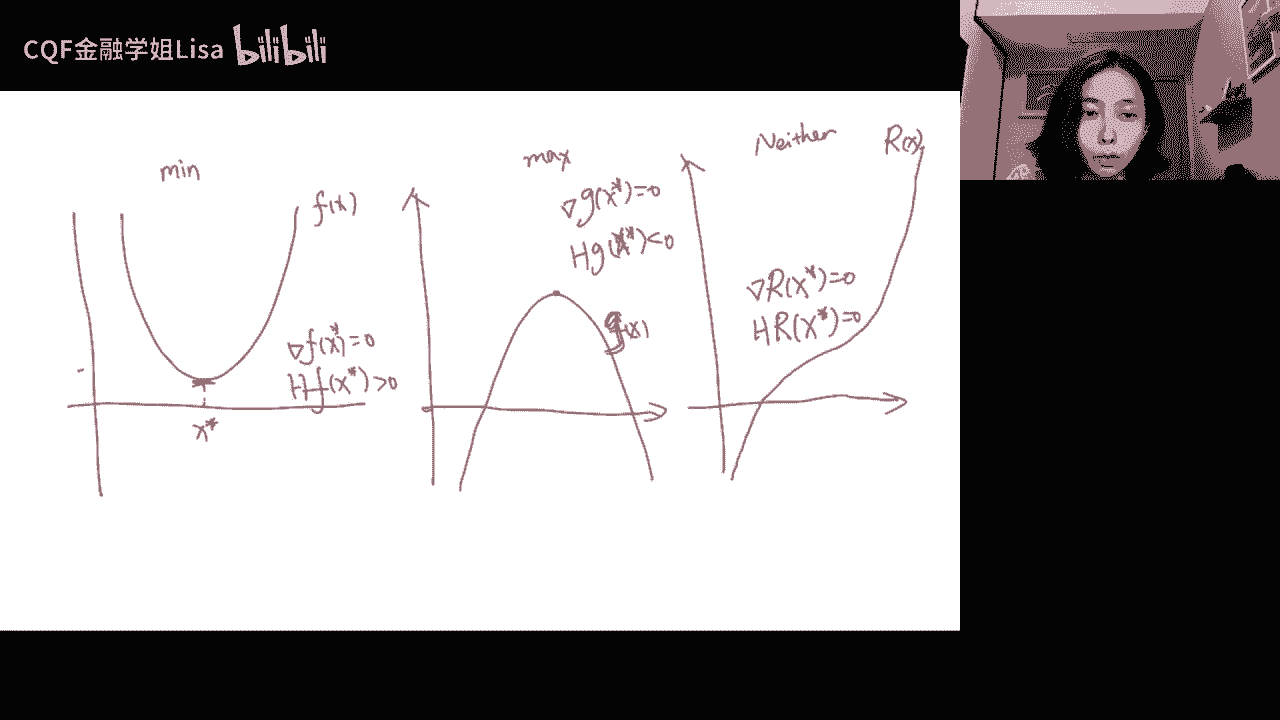 CQF金融学姐Lisa bilibili
min
f(x)
∇f(x*)=0
Hf(x*)>0
x*
max
∇g(x*)=0
Hg(x*)<0
g(x)
Neither
R(x)
∇R(x*)=0
HR(x*)=0